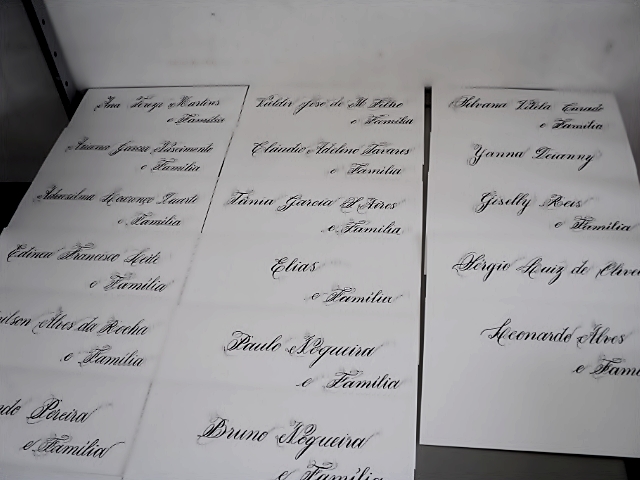 Ana Terez Martins
e Família
Nascimento
e Família
Lourenço Duarte
e Família
Edinea Francisco Leite
e Família
Alves da Rocha
e Família
Pereira
e Família
Valder José de M. Filho
e Família
Cláudio Adelino Tavares
e Família
Tânia Garcia S. Neres
e Família
Elias
e Família
Paulo Nogueira
e Família
Bruno Nogueira
e Família
Silvana Vilela
e Família
Yanna Deianny
Giselly Reis
e Família
Sérgio Luiz de
Leonardo Alves
e